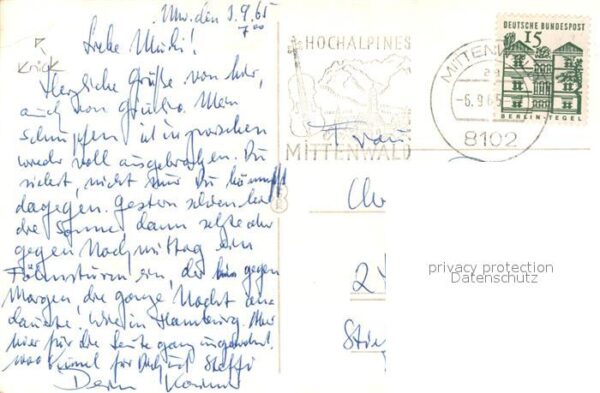 Mw. den 3.9.65
7⁰⁰
Knick
Liebe Mudi!
Herzliche Grüße von hier,
auch von Mein
schnupfen ist inzwischen
wieder voll ausgebrochen. Du
siehst, nicht nur Du kämpfst
dagegen. Gestern schien hier
die Sonne, dann setzte aber
gegen Nachmittag ein
Föhnsturm ein der bis gegen
Morgen die ganze Nacht an-
dauerte. Wie in Hamburg. Nur
hier für die Leute ganz ungewohnt!
1000 für Dich und Steffi
Dein
HOCHALPINES
MITTENWALD
MITTENWALD
-6.9.65
8102
DEUTSCHE BUNDESPOST
15
BERLIN-TEGEL
Frau
2
privacy protection
Datenschutz